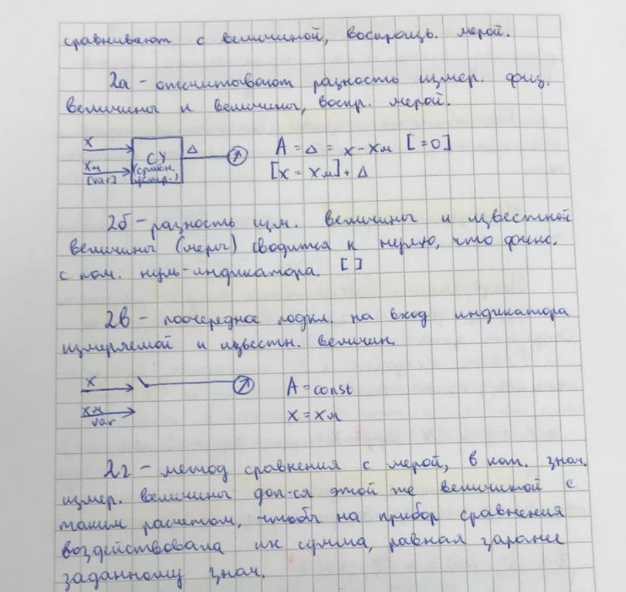 сравнивают с величиной, воспроизв. мерой.
2а - отсчитывают разность измер. физ.
величины и величины, воспр. мерой.
X
Xм
[var]
СУ
(сравн.
устр.)
Δ
A = Δ = X - Xм [=0]
[X = Xм] + Δ
2б - разность изм. величины и известной
величины (меры) сводится к нулю, что фикс.
с пом. нуль-индикатора. [ ]
2в - поочередное подкл. на вход индикатора
измеряемой и известн. величин.
X
Xм
var
A = const
X = Xм
2г - метод сравнения с мерой, в кот. знач.
измер. величины доп-ся этой же величиной с
таким расчетом, чтобы на прибор сравнения
воздействовала их сумма, равная заранее
заданному знач.